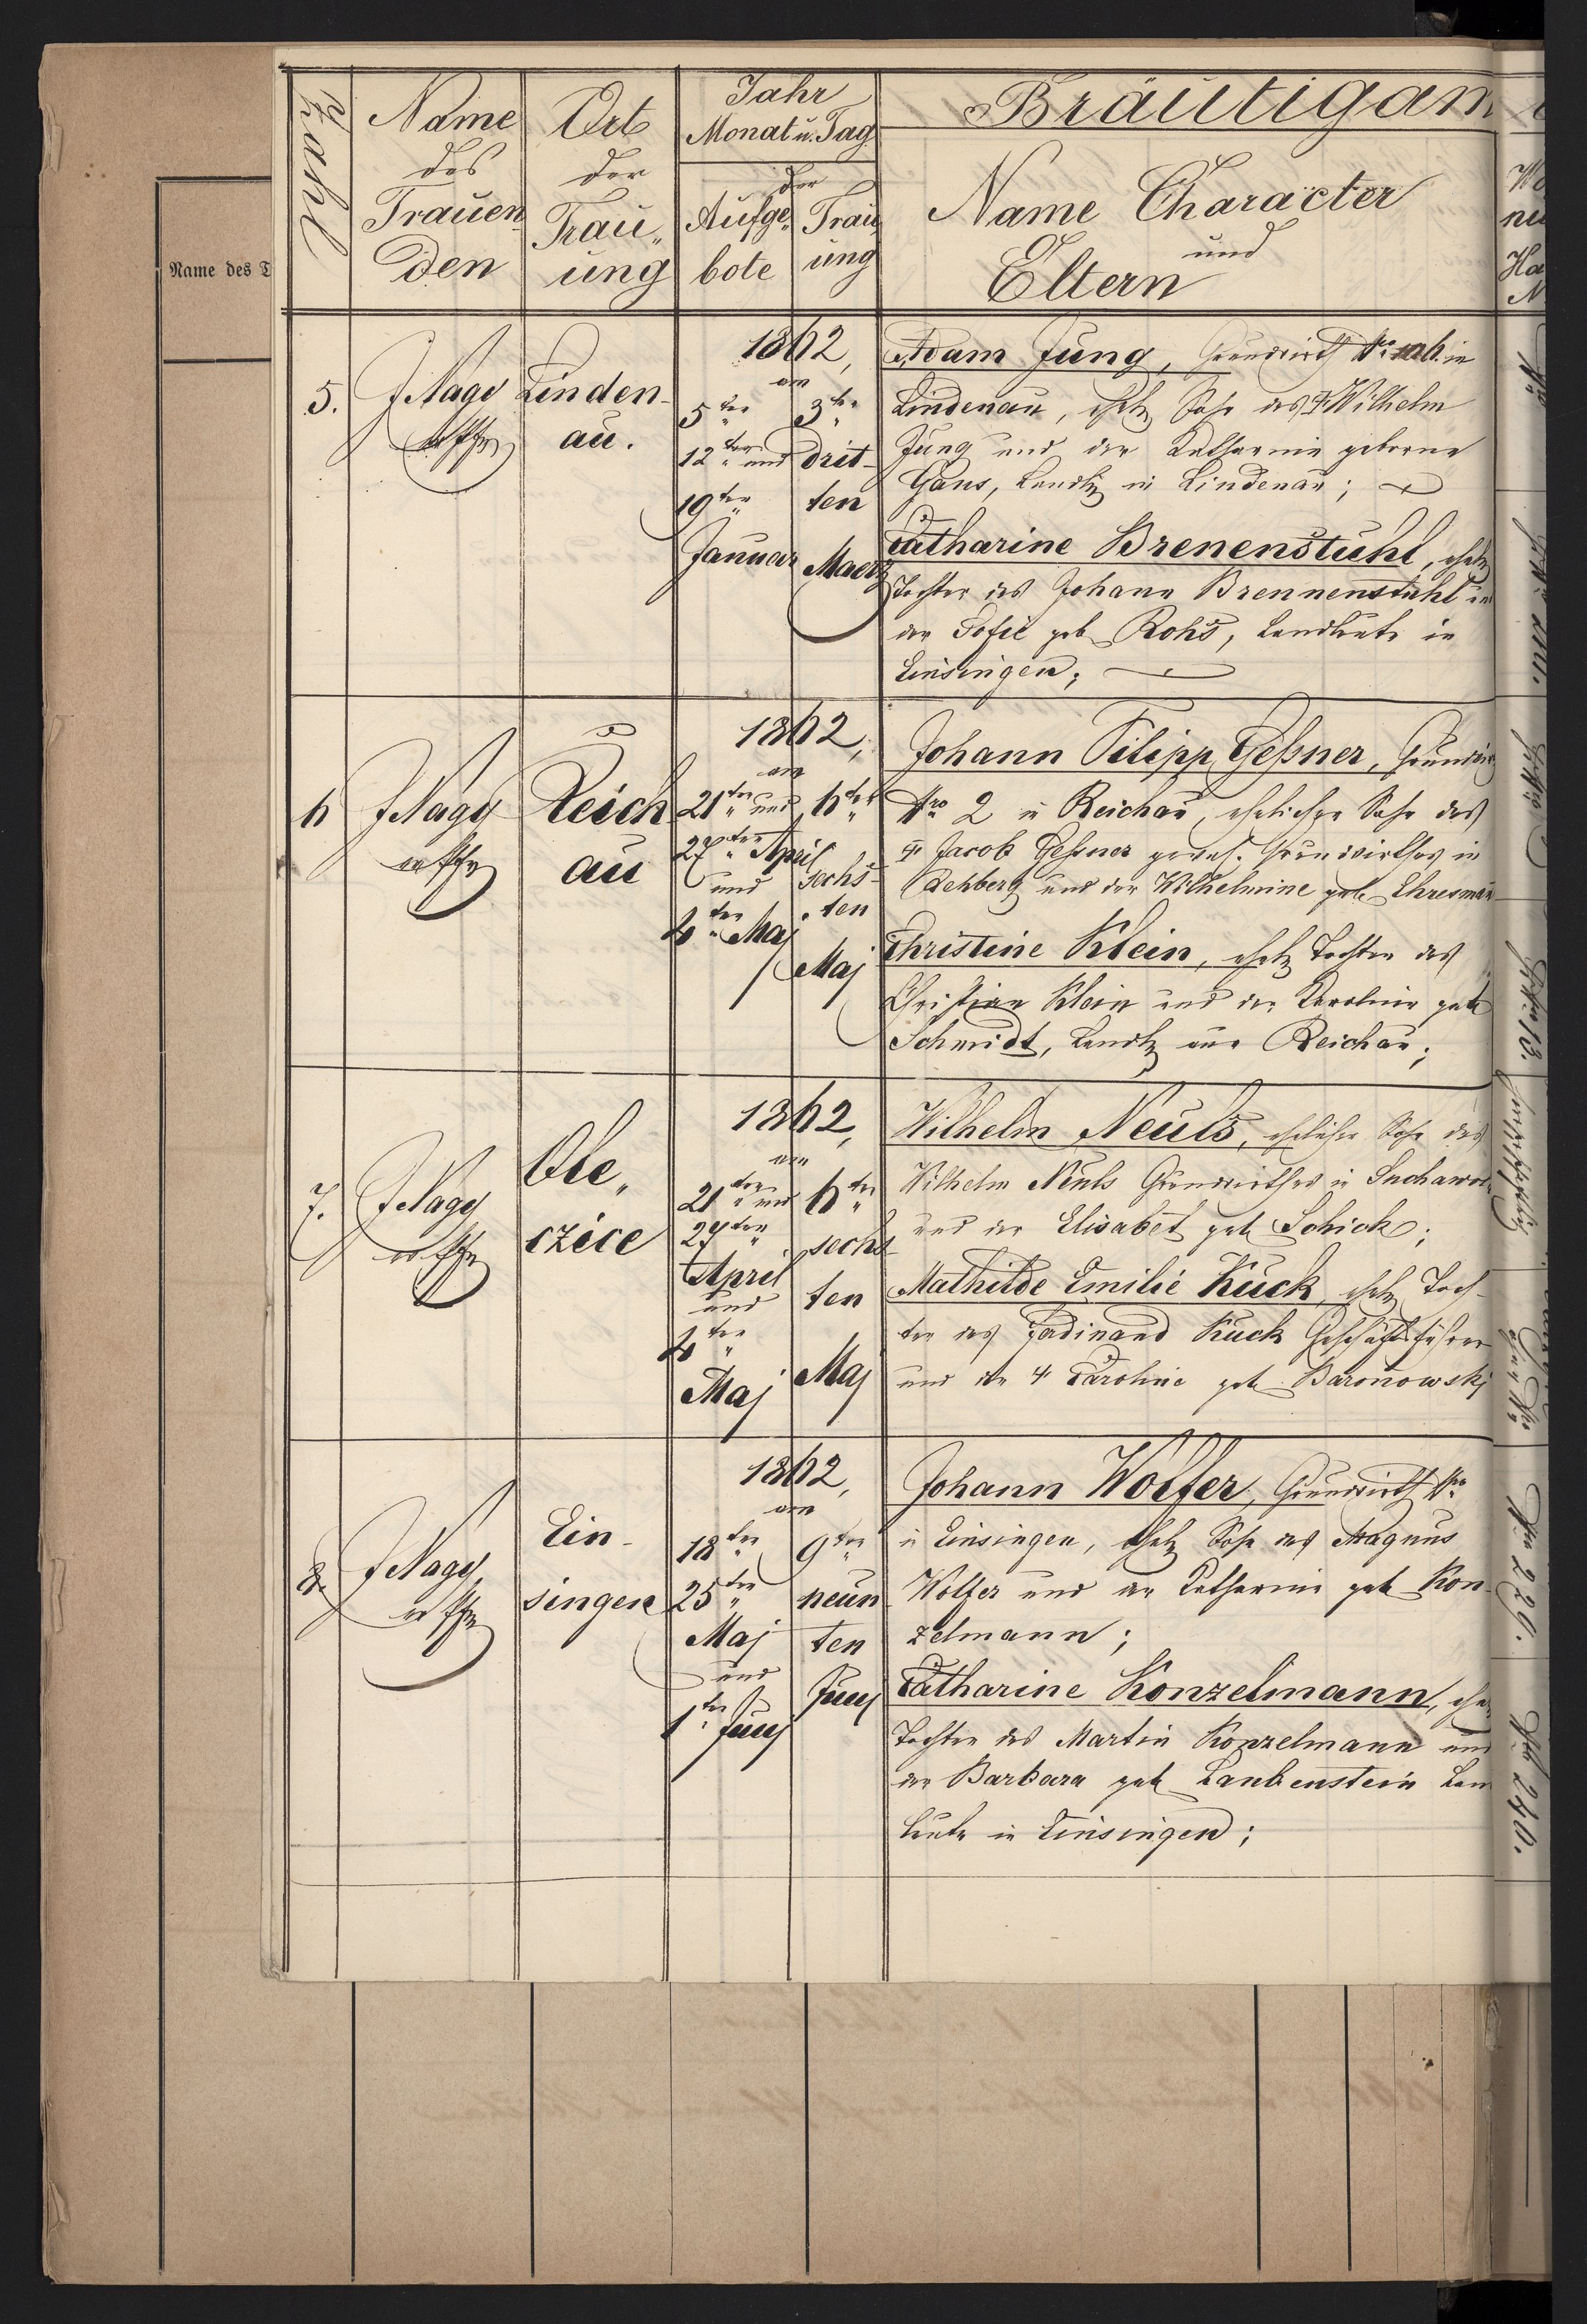 Name des T
Zahl
Name
des
Trauen-
den
Ort
der
Trau„
ung
Jahr
Monat u. Tag
der
Aufge„
bote
Trau„
ung
Bräutigam
Name Character
und
Eltern
5.
J Nagy
Linden-
au.
1862,
am
5ten
12ten und
19ten
Januar
3ten
drit-
ten
Maerz
Adam Jung, Grundwirth Nro in
Lindenau, ehel. Sohn des † Wilhelm
Jung und der Katharine geborne
Gans, Landl. in Lindenau;
Catharine Brenenstuhl, ehel.
Tochter des Johann Brennenstuhl
der Sofie geb Rohs, Landleute in
Einsingen;
6
J Nagy
Reich
au
1862,
am
21ten und
27ten April
und
4ten Maj
6ten
sechs-
ten
Maj
Johann Filipp Geßner,
Nro 2 in Reichau, ehelicher Sohn des
† Jacob Geßner gewes. Grundwirthes in
Rehberg und der Wilhelmine geb. Ehresmann
Christine Klein, ehel. Tochter des
Christian Klein und der Karoline geb
Schmidt, Landl. aus Reichau;
7.
J Nagy
Ole„
czice
1862,
am
21ten und
27ten
April
und
4ten
Maj
6ten
sechs-
ten
Maj
Wilhelm Neuls, ehelicher Sohn des
Wilhelm Neuls Grundwirthes in
und der Elisabet geb Schick;
Mathilde Emilie Kuck, ehel. Toch-
ter des Ferdinand Kuck Geschäftsführer
und der † Caroline geb Baronowskj
8.
J Nagy
Ein-
singen
1862,
am
18ten
25ten
Maj
und
1ten Junj
9ten
neun
ten
Junj
Johann Wolfer, Grundwirth Nro
in Einsingen, ehel. Sohn des Magnus
Wolfer und der Katharine geb Kon-
zelmann;
Catharine Konzelmann,
Tochter des Martin Konzelmann und
der Barbara geb Laubenstein
leute in Einsingen;